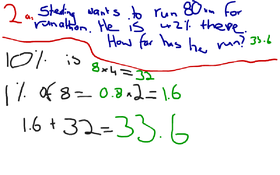 2 a. Sterling wants to run 80km for
runathon. He is 42% there.
How far has he run? 33.6
10% is 8 × 4 = 32
1% of 8 = 0.8 × 2 = 1.6
1.6 + 32 = 33.6